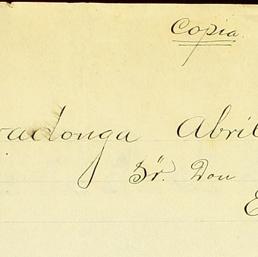 Copia.
vadonga Abril
Sr. Don
E